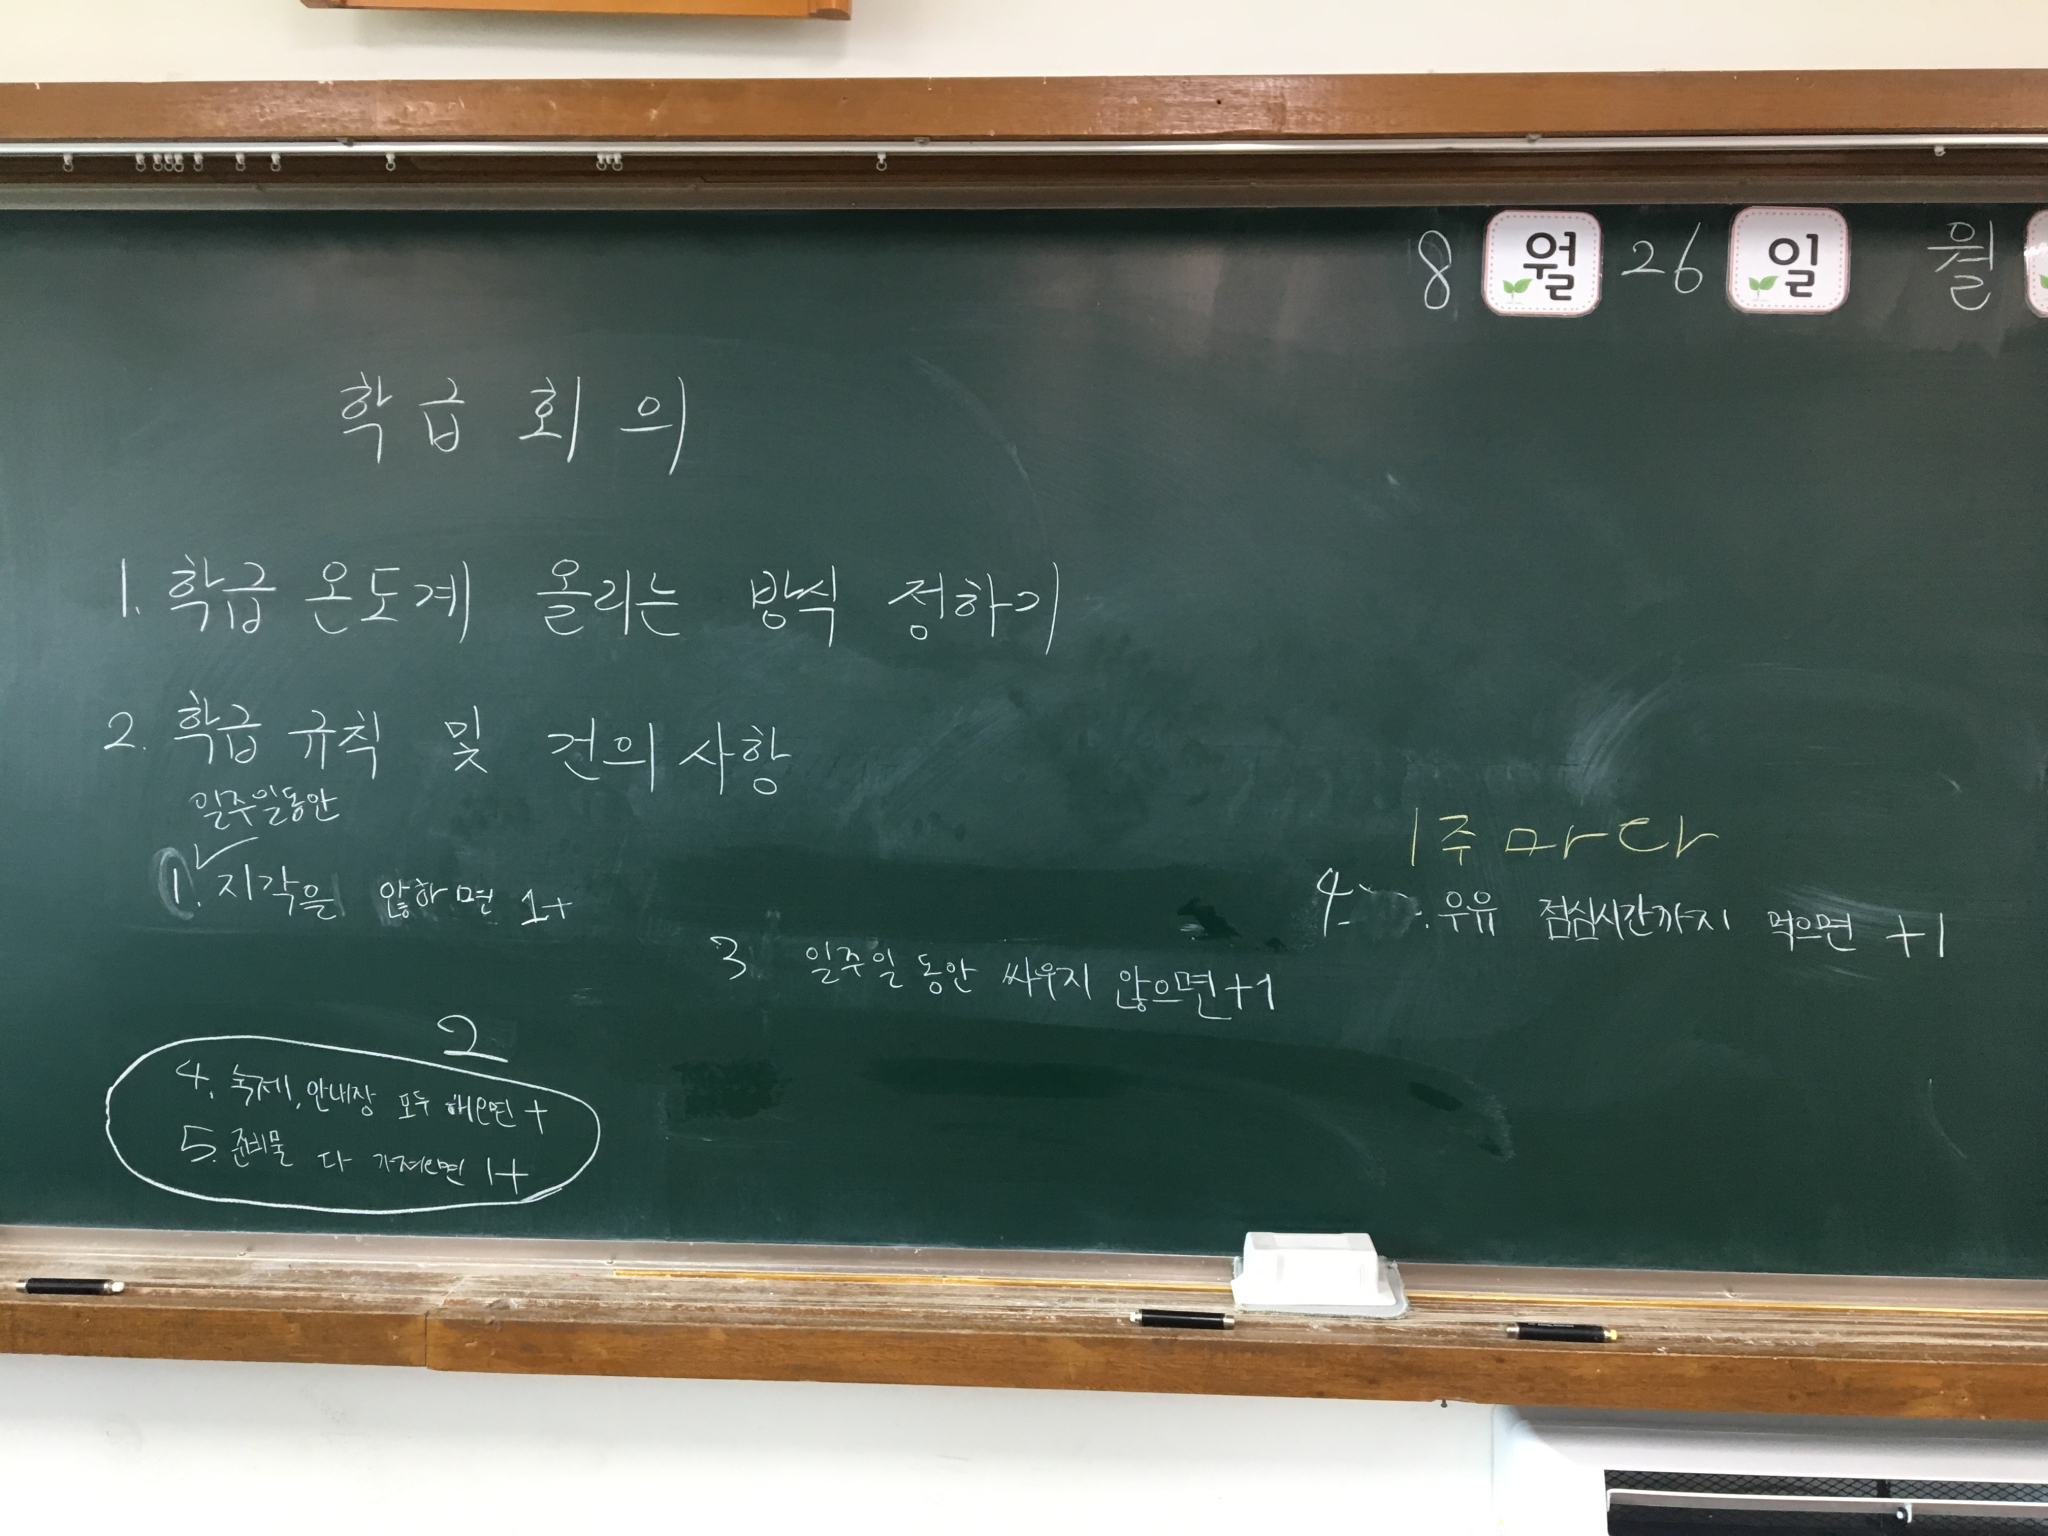 8 월 26 일 월
학급 회의
1. 학급 온도계 올리는 방식 정하기
2. 학급 규칙 및 건의 사항
일주일동안
1. 지각을 않하면 1+
1주 마다
4 : 우유 점심시간까지 먹으면 +1
3. 일주일 동안 싸우지 않으면 +1
2
4. 숙제, 안내장 모두 해오면 +
5. 준비물 다 가져오면 1+